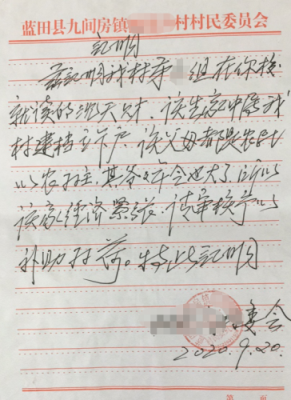 蓝田县九间房镇 村村民委员会
证明
兹证明我村第 组在你校
就读的 该生家中属我
村建档立卡户。该父母都是农民
以务农为主,其爷年令也大了,所以
该家经济紧张,请审核予以
补助为荷。特此证明
委会
2020.9.20.